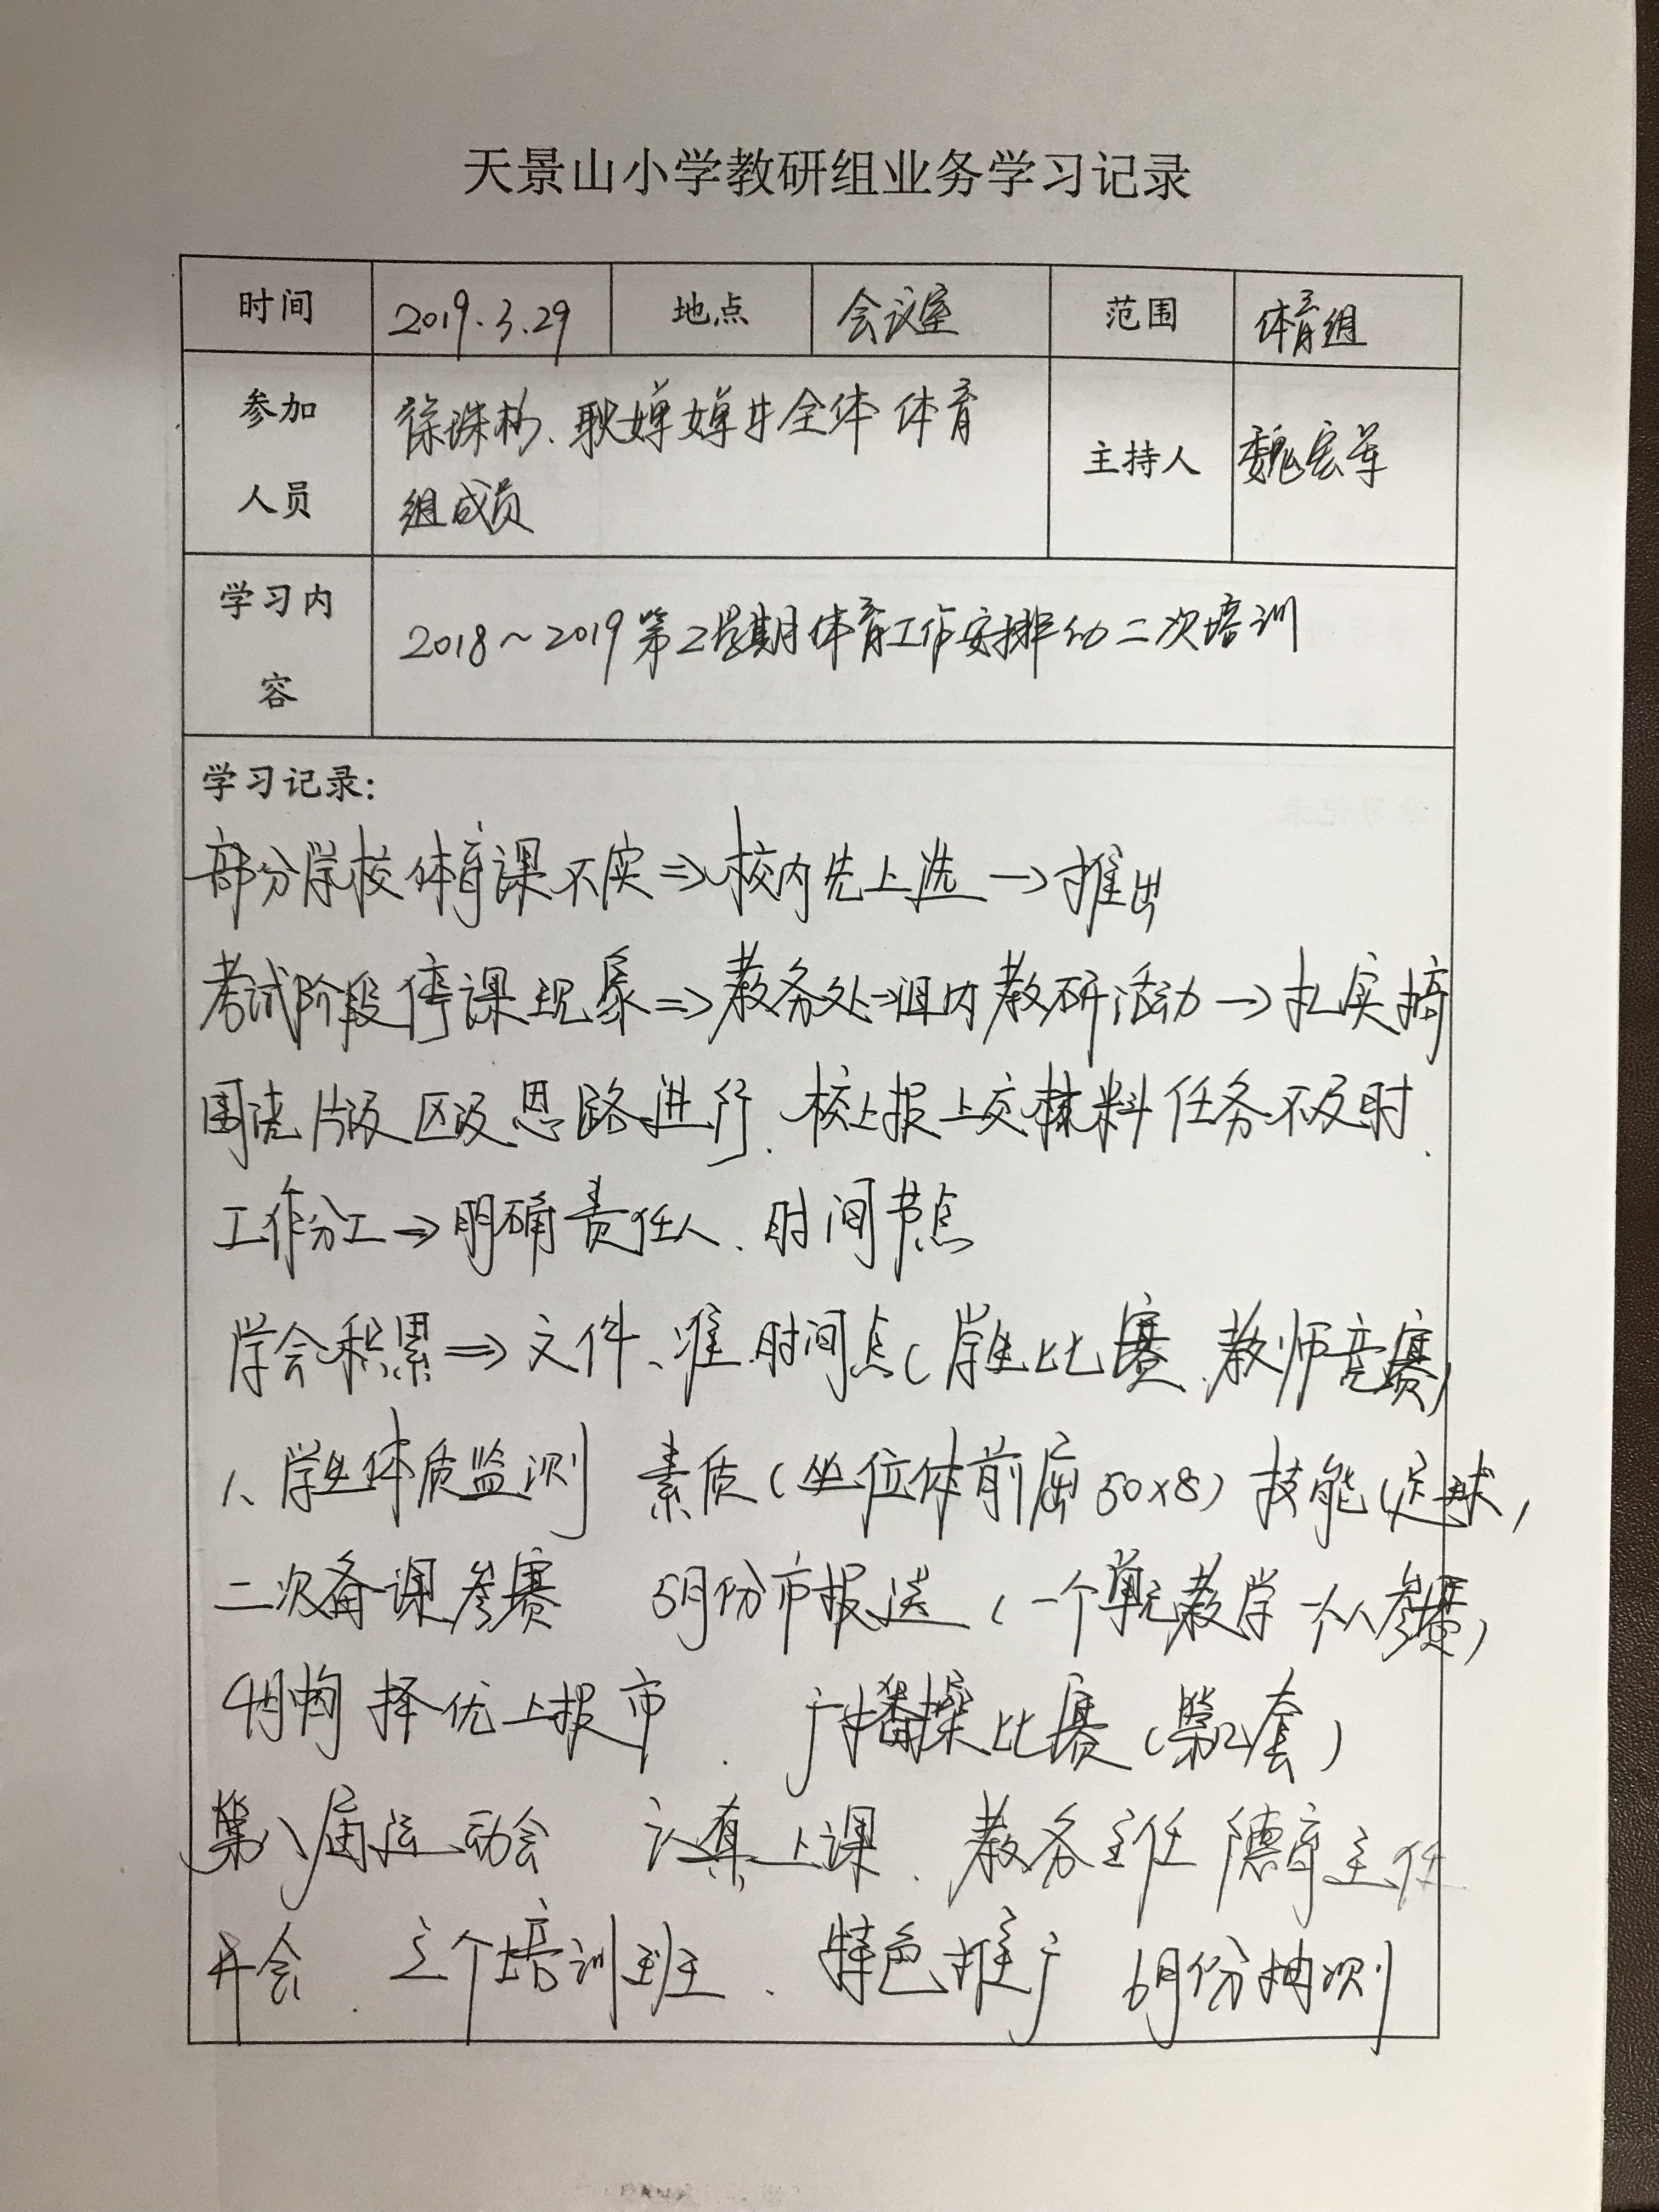 天景山小学教研组业务学习记录
时间 2019.3.29 地点 会议室 范围 体育组
参加人员 徐珠 、耿婵婵 全体体育
组成员
主持人 魏宏军
学习内容 2018~2019第2学期体育工作安排 二次培训
学习记录：
部分学校体育课不实⇒校内先上选→推出
考试阶段停课现象⇒教务处→组内教研活动→扎实搞
围绕片级区级思路进行、校上报上交材料任务不及时、
工作分工→明确责任人、时间节点
学会积累⇒文件、准时间点(学生比赛、教师竞赛)
1、学生体质监测 素质(坐位体前屈50×8)技能(足球)
二次备课参赛 5月份市报送(一个单元教学 一个人参赛)
4月中旬择优上报市、广播操比赛(第2套)
第八届运动会 认真上课、教务主任 德育主任
开会、 三个培训班、特色推广 6月份抽测